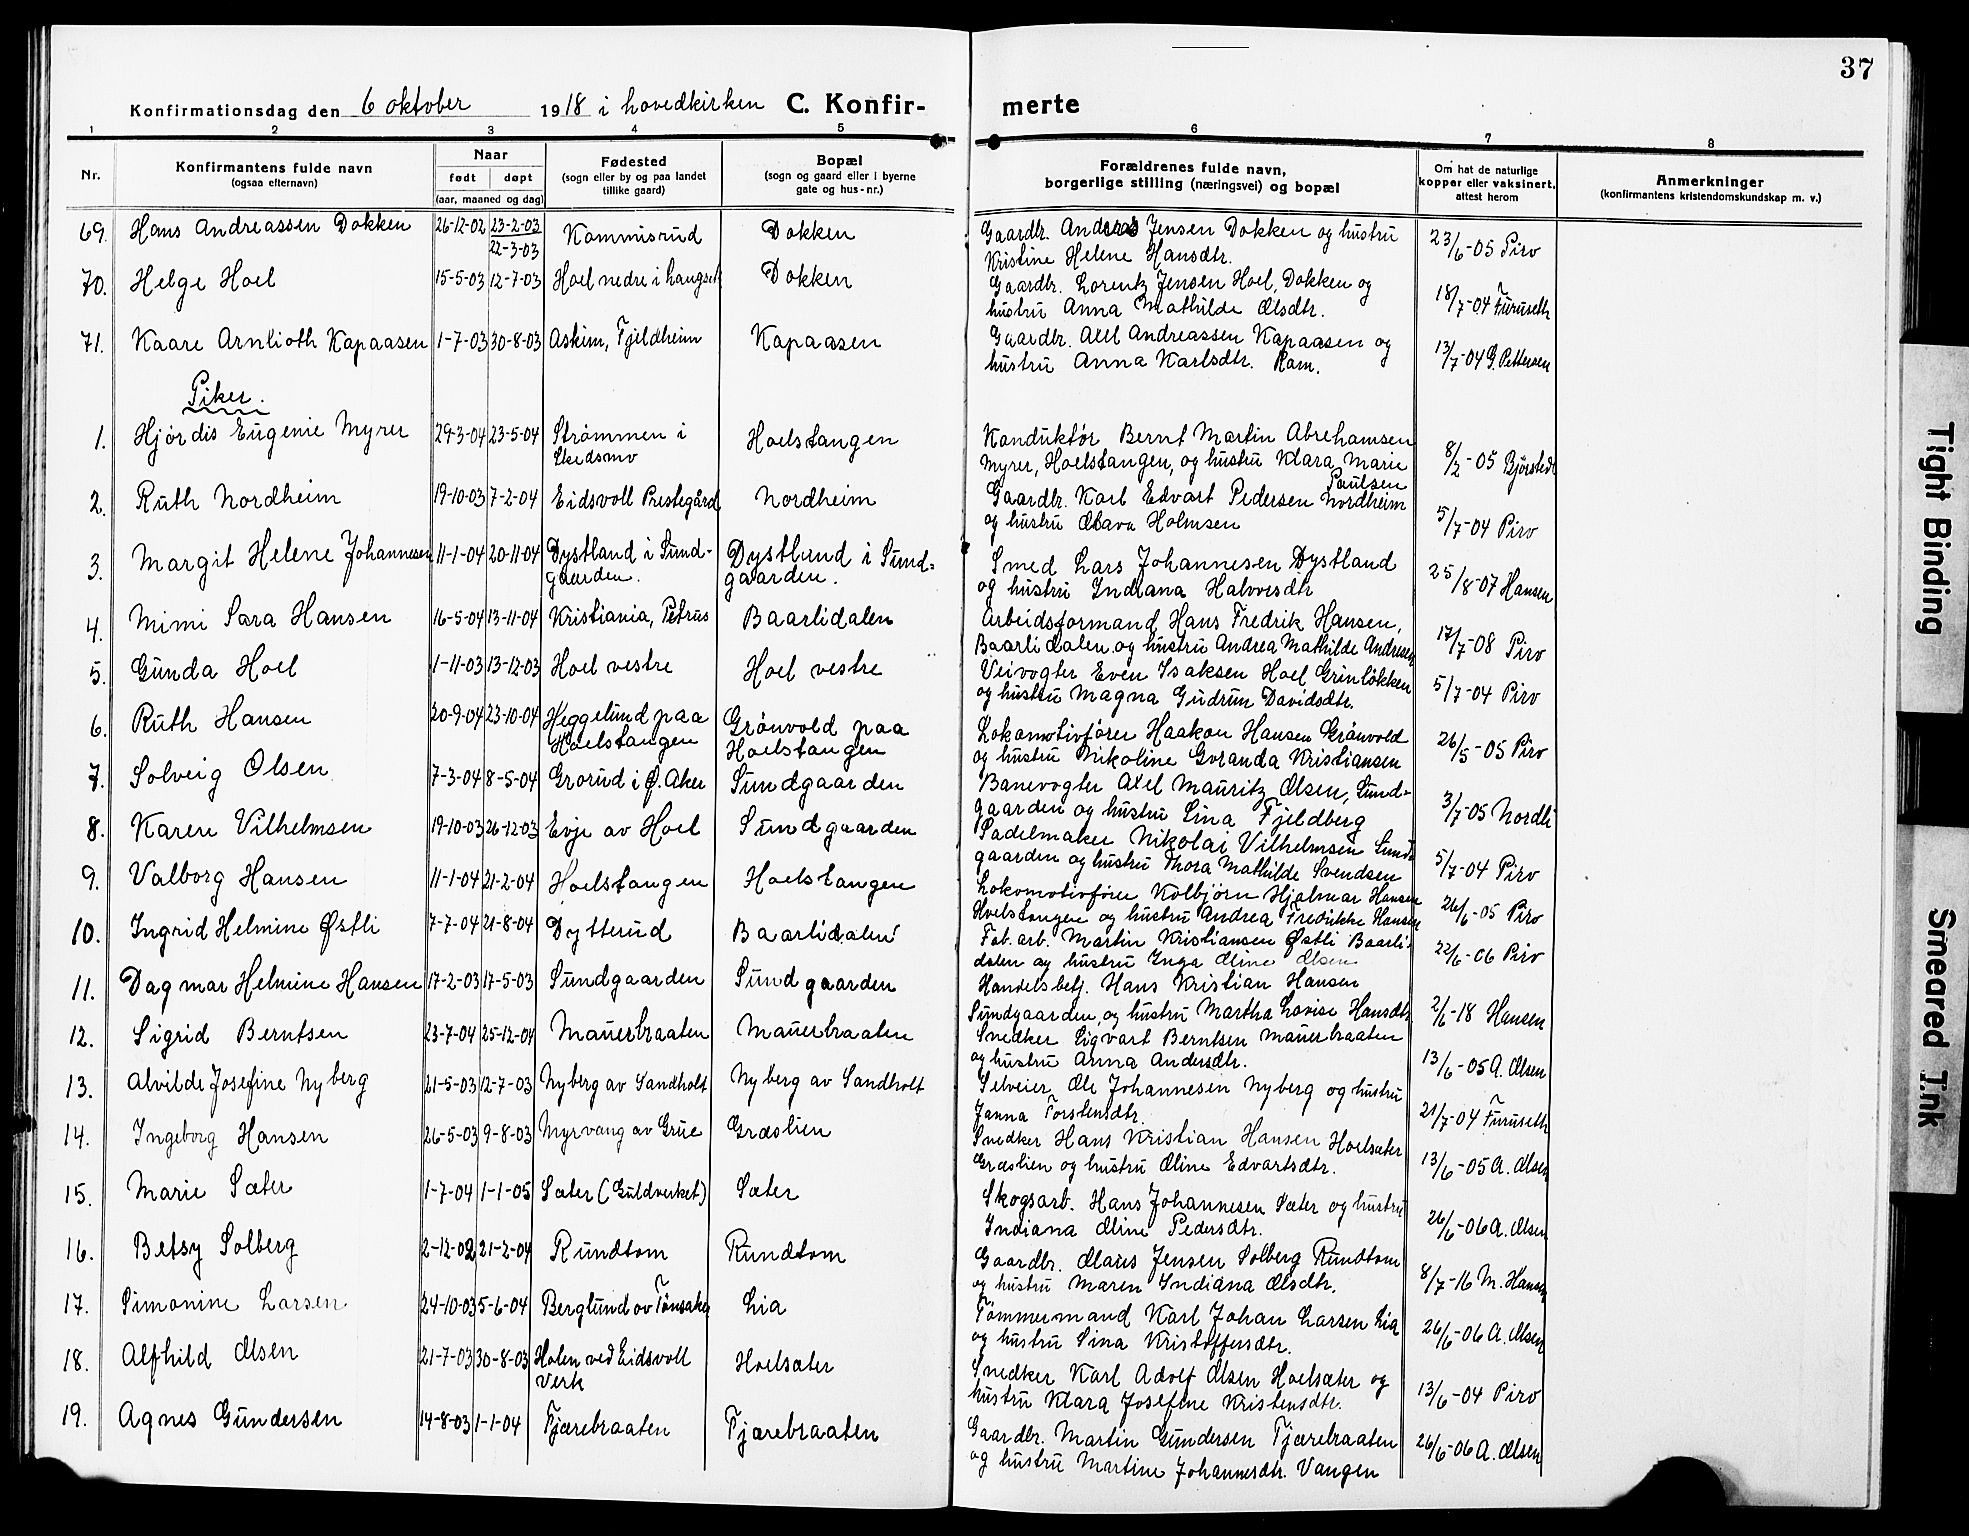 37
Konfirmationsdag den 6 oktober 1918 i hovedkirken C. Konfirmerte
1 2 3 4 5 6 7 8
Nr.
Konfirmantens fulde navn
(ogsaa efternavn)
Naar
født døpt
(aar, maaned og dag)
Fødested
(sogn eller by og paa landet
tillike gaard)
Bopæl
(sogn og gaard eller i byerne
gate og hus-nr.)
Forældrenes fulde navn,
borgerlige stilling (næringsvei) og bopæl
Om hat de naturlige
kopper eller vaksinert,
attest herom
Anmerkninger
(konfirmantens kristendomskundskap m. v.)
69. Hans Andreassen Dokken 26-12-02 23-2-03 Kommisrud Dokken Gaardbr. Andreas Jensen Dokken og hustru 23/6-05 Piro
22-3-03 Kristine Helene Hansdtr.
70. Helge Hoel 15-5-03 12-7-03 Hoel nedre i Langset Dokken Gaardbr. Lorentz Jensen Hoel, Dokken og 18/7-04 Furuseth
hustru Anna Mathilde Olsdtr.
71. Kaare Arnlioth Kapaasen 1-7-03 30-8-03 Askim, Fjeldheim Kapaasen Gaardbr. Axel Andreassen Kapaasen og 13/7-04 G. Pettersen
hustru Anna Karlsdtr. Ram.
Piker.
1. Hjørdis Eugenie Myrer 29-3-04 23-5-04 Strømmen i Hoelstangen Konduktør Bernt Martin Abrehamsen 8/2-05 Bjørstedt
Skedsmo Myrer, Hoelstangen, og hustru Klara Marie
Paulsen
2. Ruth Nordheim 19-10-03 7-2-04 Eidsvoll Prestegård Nordheim Gaardbr. Karl Edvart Pedersen Nordheim 5/7-04 Piro
og hustru Olava Holmsen
3. Margit Helene Johannesen 11-1-04 20-11-04 Dystland i Sund- Dystlund i Sund- Smed Lars Johannesen Dystland 25/8-07 Hansen
gaarden. gaarden. og hustru Indiana Halvorsdtr
4. Mimi Sara Hansen 16-5-04 13-11-04 Kristiania, Petrus Baarlidalen Arbeidsformand Hans Fredrik Hansen, 17/7-08 Piro
Baarlidalen og hustru Andrea Mathilde Andresen
5. Gunda Hoel 1-11-03 13-12-03 Hoel vestre Hoel vestre Veivogter Even Isaksen Hoel Grinløkken 5/7-04 Piro
og hustru Magna Gudrun Davidsdtr.
6. Ruth Hansen 20-9-04 23-10-04 Heggelund paa Grønvold paa Lokomotivfører Haakon Hansen Grønvold 26/5-05 Piro
Hoelstangen Hoelstangen og hustru Nikoline Goranda Kristiansen
7. Solveig Olsen 7-3-04 8-5-04 Grorud i Ø. Aker Sundgaarden Banevogter Axel Mauritz Olsen, Sund- 3/7-05 Nordli
gaarden og hustru Lina Fjeldberg
8. Karen Vilhelmsen 19-10-03 26-12-03 Evje av Hoel Sundgaarden Sadelmaker Nikolai Vilhelmsen Sund- 5/7-04 Piro
gaarden og hustru Thora Mathilde Svendsen
9. Valborg Hansen 11-1-04 21-2-04 Hoelstangen Hoelstangen Lokomotivfører Kolbjørn Hjalmar Hansen 26/6-05 Piro
Hoelstangen og hustru Andrea Fredrikke Hansen
10. Ingrid Helmine Østli 7-7-04 21-8-04 Dytterud Baarlidalen Fab. arb. Martin Kristiansen Østli Baarli- 22/6-06 Piro
dalen og hustru Inga Oline Olsen
11. Dagmar Helmine Hansen 17-2-03 17-5-03 Sundgaarden Sundgaarden Handelsbetj. Hans Kristian Hansen 2/6-18 Hansen
Sundgaarden, og hustru Martha Lovise Hansdtr
12. Sigrid Berntsen 23-7-04 25-12-04 Mauerbraaten Mauerbraaten Snedker Sigvart Berntsen Mauerbraaten 13/6-05 A. Olsen
og hustru Anna Andersdtr.
13. Alvilde Josefine Nyberg 21-5-03 12-7-03 Nyberg av Sandholt Nyberg av Sandholt Selveier Ole Johannesen Nyberg og hustru 21/7-04 Furuseth
Janna Torstensdtr.
14. Ingeborg Hansen 26-5-03 9-8-03 Myrvang av Grue Græslien Snedker Hans Kristian Hansen Hoelsæter 13/6-05 A. Olsen
Græslien og hustru Oline Edvartsdtr.
15. Marie Sæter 1-7-04 1-1-05 Sæter (Guldverket) Sæter Skogsarb. Hans Johannesen Sæter og hustru 26/6-06 A. Olsen
Indiana Oline Pedersdtr.
16. Betsy Solberg 2-12-02 21-2-04 Rundtom Rundtom Gaardbr. Olaus Jensen Solberg Rundtom 8/7-16 M. Hansen
og hustru Maren Indiana Olsdtr.
17. Simonine Larsen 24-10-03 5-6-04 Berglund av Tønsaker Lia Tømmermand Karl Johan Larsen Lia 26/6-06 A. Olsen
og hustru Sina Kristoffersdtr.
18. Alfhild Olsen 21-7-03 30-8-03 Holen ved Eidsvoll Hoelsæter Snedker Karl Adolf Olsen Hoelsæter og 13/6-04 Piro
Verk hustru Klara Josefine Kristensdtr.
19. Agnes Gundersen 14-8-03 1-1-04 Fjærebraaten Fjærebraaten Gaardbr. Martin Gundersen Fjærebraaten 26/6-06 A. Olsen
og hustru Martine Johannesdtr. Vangen
Tight Binding
Smeared Ink